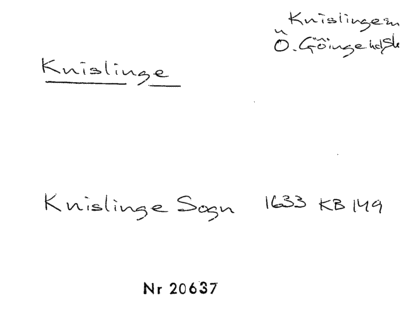 Knislinge sn
Ö. Göinge hd Sk
Knislinge
Knislinge Sogn 1633 KB 149
Nr 20637